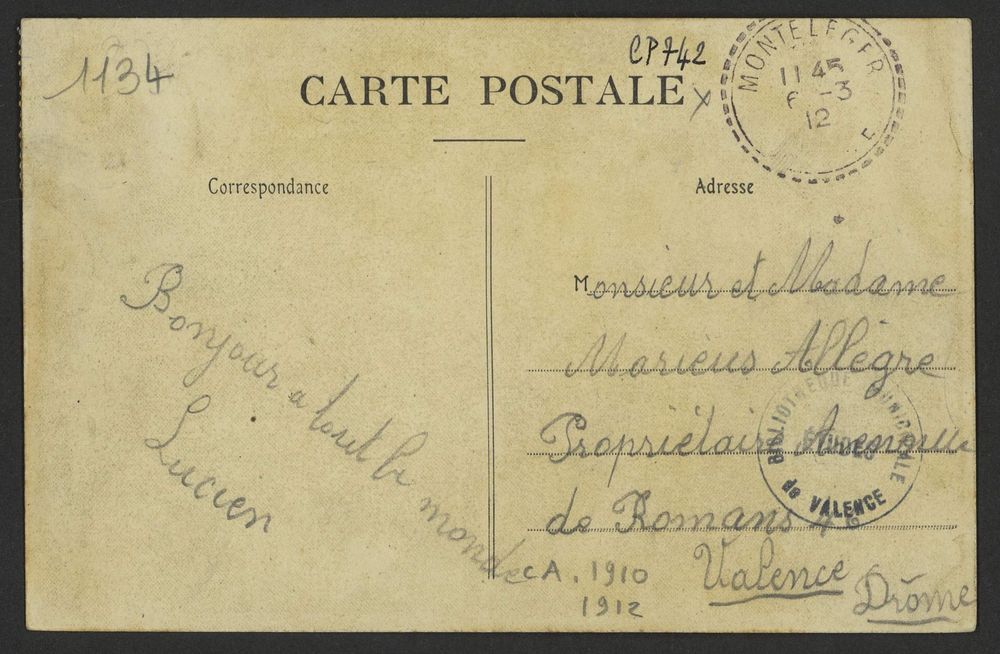 1134
CP742
CARTE POSTALE
x
MONTELEGER
11 45
6 -3
12
E
Correspondance
Adresse
Bonjour a tout le monde
Lucien
Monsieur et Madame
Marieus Allègre
Propriétair Avenue
de Romans
Valence
Drôme
BIBLIOTHEQUE MUNICIPALE
ETUDES
de VALENCE
CA. 1910
1912